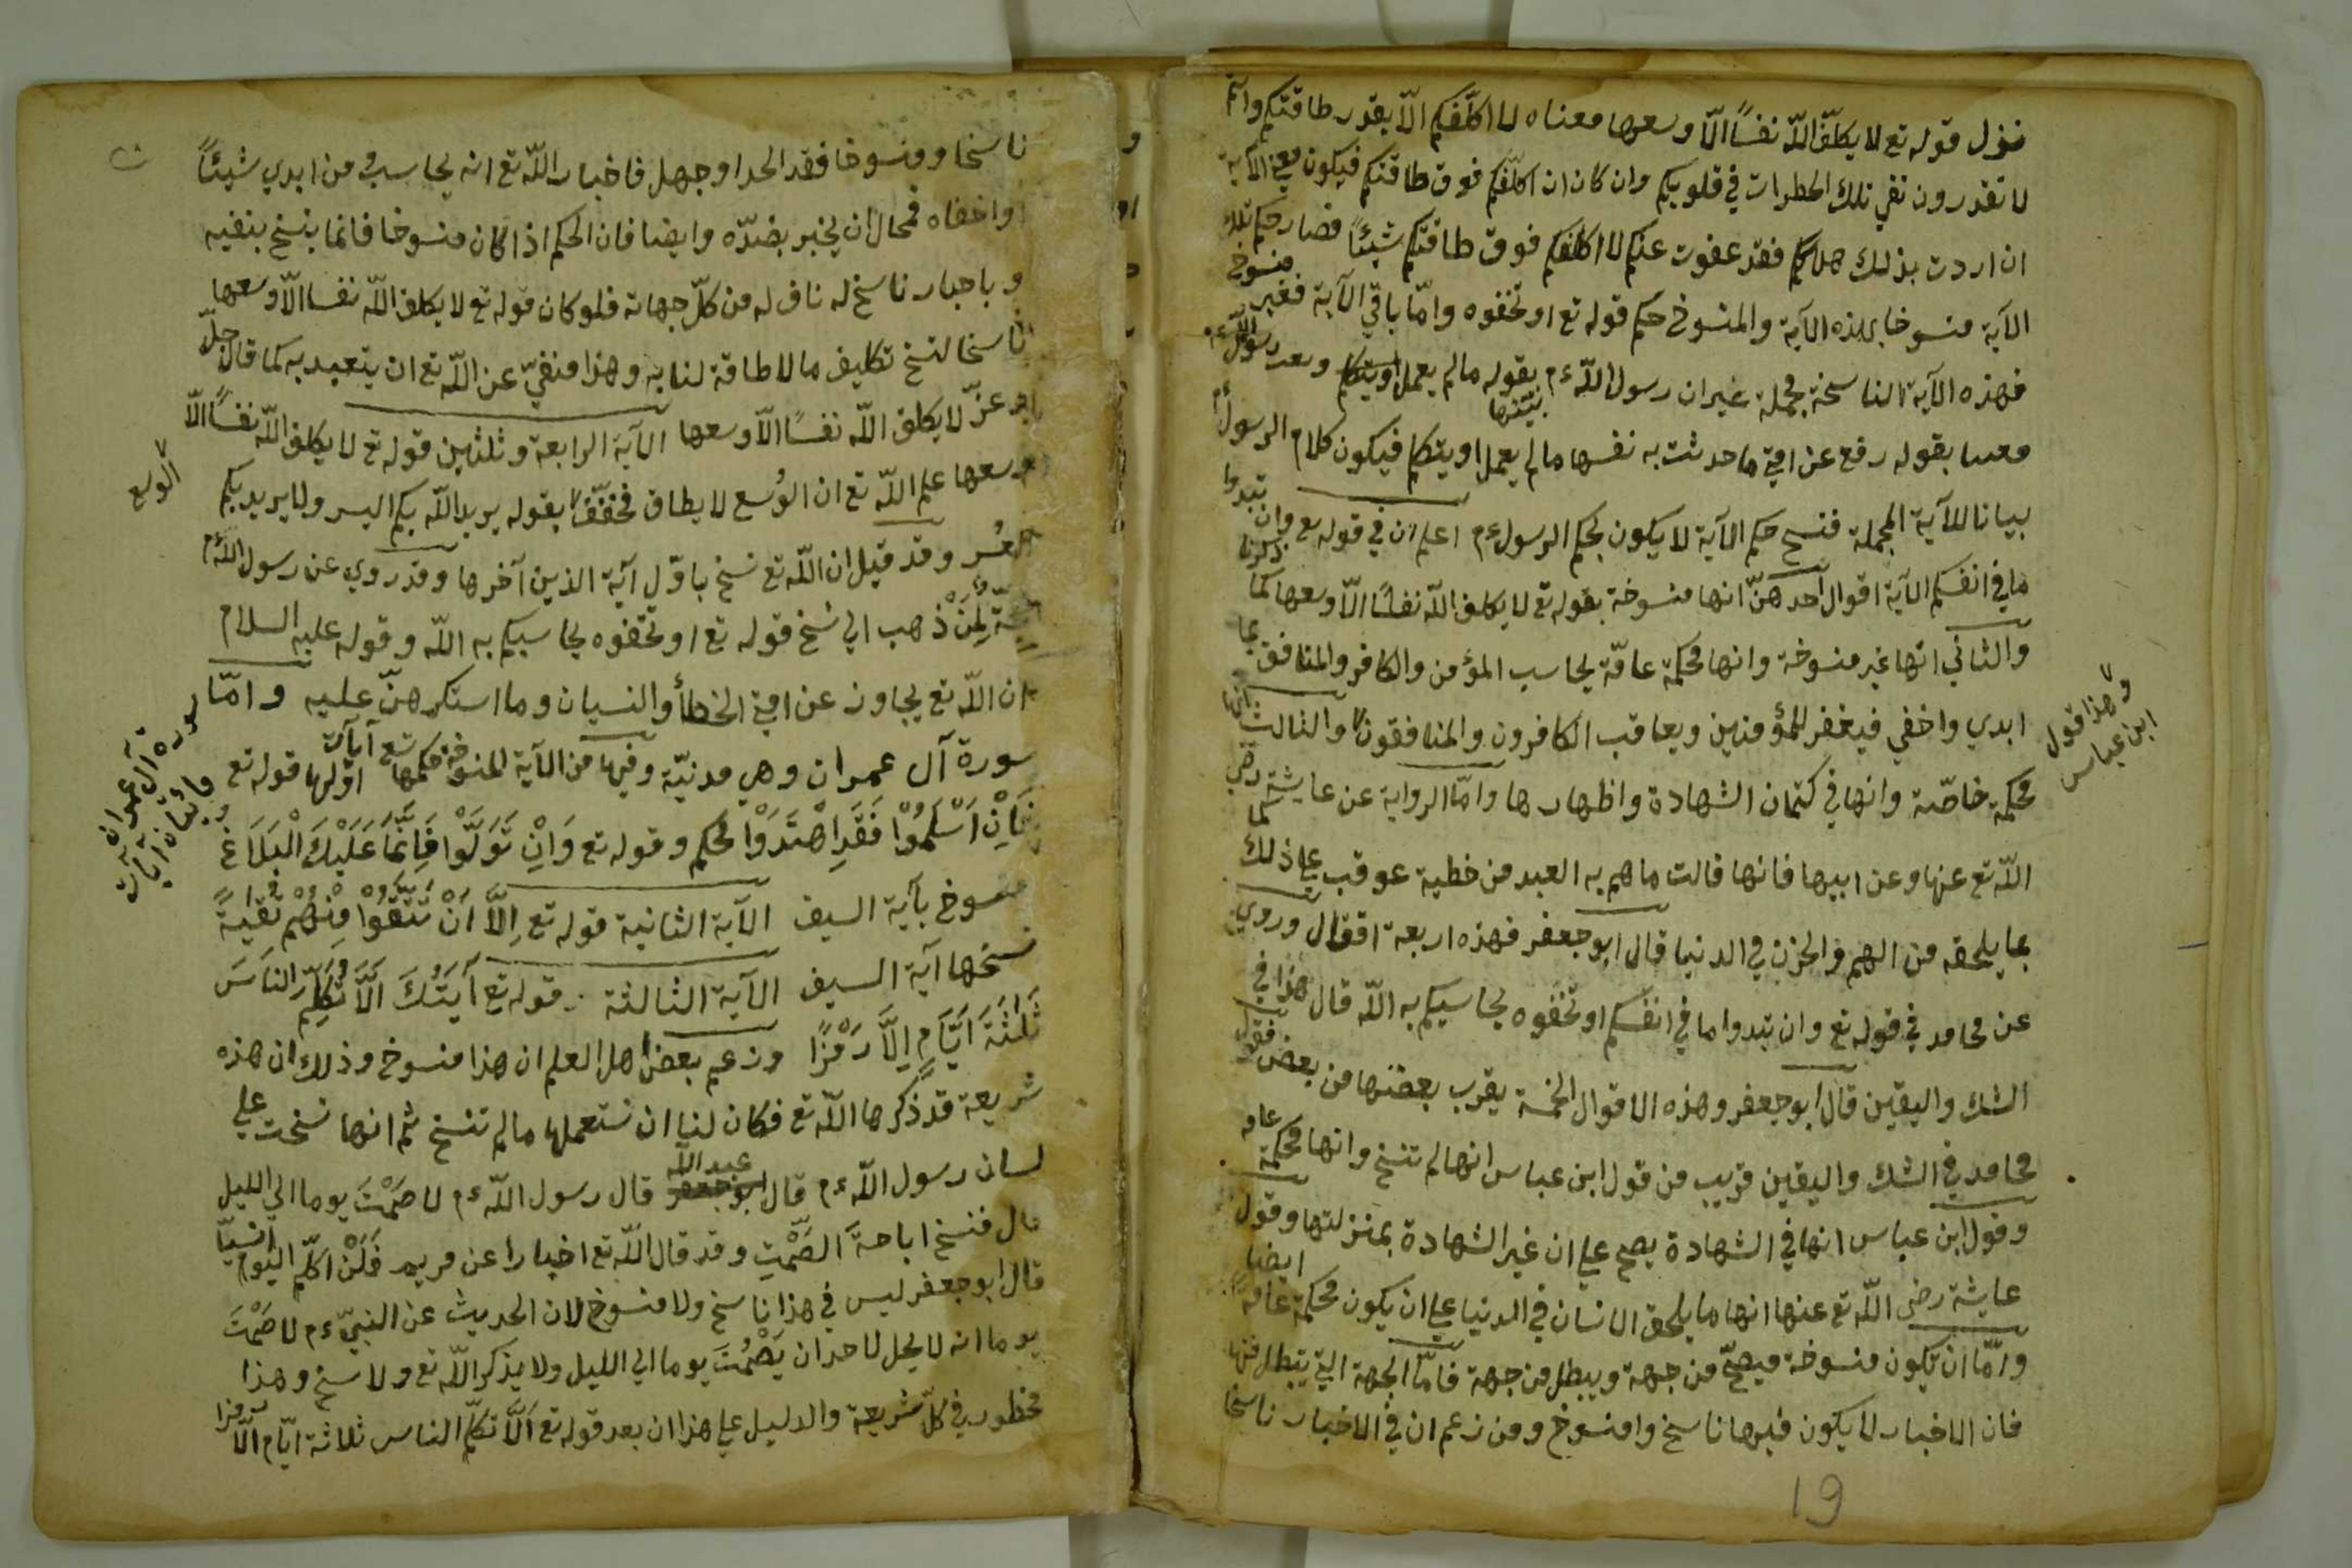 فنزل قوله تع لا يكلّف اللّه نفسًا الّا وسعها معناه لا اكلّفكم الّا بقدر طاقتكم وانتم
لا تقدرون نفي تلك الخطرات في قلوبكم وان كان ان اكلّفكم فوق طاقتكم فيكون معنى الآية
ان اردت بذلك هلاككم فقد عفوت عنكم لا اكلّفكم فوق طاقتكم شيئًا فصار حكم تلك
الآية منسوخا بهذه الآية والمنسوخ حكم قوله تع او تخفوه وامّا باقي الآية فغير منسوخ
فهذه الآية الناسخة مجملة غيران رسول اللّه ءم بيّنها بقوله مالم يعمل او يتكلم وبعد رسول اللّه ءم
بقوله رفع عن امتي ما حدثت به نفسها مالم يعمل او يتكلم فيكون كلام الرسول
بيانا للآية المجملة فنسخ حكم الآية لا يكون بحكم الرسول ءم اعلم ان في قوله تع وان تبدوا
ما في انفسكم الآية اقوال احدهنّ انها منسوخة بقوله تع لا يكلف اللّه نفسًا الّا وسعها كما ذكرنا
والثاني انها غير منسوخة وانها محكمة عامّة يحاسب المؤمن والكافر والمنافق بما
ابدي واخفي فيغفر للمؤمنين ويعاقب الكافرون والمنافقون والثالث انها
وهذا قول
ابن عباس
محكمة خاصّة وانها في كتمان الشهادة واظهارها وامّا الرواية عن عايشة رضي
اللّه تع عنها وعن ابيها فانها قالت ما هم به العبد من خطية عوقب علي ذلك
بما يلحقه من الهم والحزن في الدنيا قال ابو جعفر فهذه اربعة اقوال وروي
عن مجاهد في قوله تع وان تبدوا ما في انفسكم او تخفوه يحاسبكم به اللّه قال هذا في
الشك واليقين قال ابو جعفر وهذه الاقوال الخمسة يقرب بعضها من بعض فقول
مجاهد في الشك واليقين قريب من قول ابن عباس انها لم تنسخ وانها محكمة عامه
وقول ابن عباس انها في الشهادة يصح علي ان غير الشهادة بمنزلتها وقول
عايشة رضي اللّه تع عنها انها ما يلحق الانسان في الدنيا علي ان يكون محكمة عامة ايضا
وامّا ان يكون منسوخة فيصحّ من جهة ويبطل من جهة فامّا الجهة التي يتبطل منها
فان الاخبار لا يكون فيها ناسخ وامنسوخ ومن زعم ان في الاخبار ناسخا
19
ناسخا ومنسوخا فقد الحد او جهل فاخبار اللّه تع انه يحاسب من ابدي شيئًا
او اخفاه فمحال ان يخبر بضدّه وايضا فان الحكم اذا كان منسوخا فانما ينسخ بنفيه
وباخبار ناسخ له ناف له من كلّ جهاته فلو كان قوله تع لا يكلف اللّه نفسا الّا وسعها
ناسخا لنسخ تكليف ما لا طاقة لنا به وهذا منفيّ عن اللّه تع ان يتعبد به كما قال جلّ
وعزّ لا يكلف اللّه نفسًا الّا وسعها الآية الرابعة وثلثين قوله تع لا يكلف اللّه نفسًا الّا
وسعها علم اللّه تع ان الوُسع لا يطاق فخفّف بقوله يريد اللّه بكم اليسر ولا يريد بكم
الوسع
العُسر وقد قيل ان اللّه تع نسخ باوّل آية الذين آخرها وقد روي عن رسول اللّه ءم
حجّة لِمَنْ ذهب الي نسخ قوله تع او تخفوه يحاسبكم به اللّه وقوله عليه السلام
ان اللّه تع يجاوز عن امتي الخطأ والنسيان وما استكرهنّ عليه وامّا
سورة آل عمران وهي مدنيّة وفيها من الآية المنسوخة حكمها تع آيات اوّلها قوله تع
سورة آل عمران
مائتان آيات
فَاِنْ اَسْلَمُوْا فَقَدِ اهْتَدَوْا محكم وقوله تع وَاِنْ تَوَلَّوْا فَاِنَّمَا عَلَيْكَ الْبَلَاغُ
منسوخ بآية السيف الآية الثانية قوله تع اِلَّا اَنْ تَتَّقُوْا مِنْهُمْ تُقيةً
نسخها آية السيف الآية الثالثة قوله تع آيَتُكَ اَلَّا تُكَلِّمَ النَاسَ
ثَلٰثَةَ اَيَّامٍ اِلَّا رَمْزًا وزعم بعض اهل العلم ان هذا منسوخ وذلك ان هذه
شريعة قد ذكرها اللّه تع فكان لنا ان نستعملها مالم تنسخ ثم انها نسخت علي
لسان رسول اللّه ءم قال ابو عبد اللّه قال رسول اللّه ءم لا صَمْتَ يوما الي الليل
قال فنسخ اباحة الصَّمْتِ وقد قال اللّه تع اخبارا عن مريم فَلَنْ اكلّم اليوم انسيّا
قال ابو جعفر ليس في هذا ناسخ ولا منسوخ لان الحديث عن النبيّ ءم لا صَمْتَ
يوما انه لا يحل لاحد ان يَصْمُتَ يوما الي الليل ولا يذكر اللّه تع ولا نسخ وهذا
محظور في كلّ شريعة والدليل علي هذا ان بعد قوله تع اَلَّا تكلّم الناس ثلاثة ايّام الّا رمزا